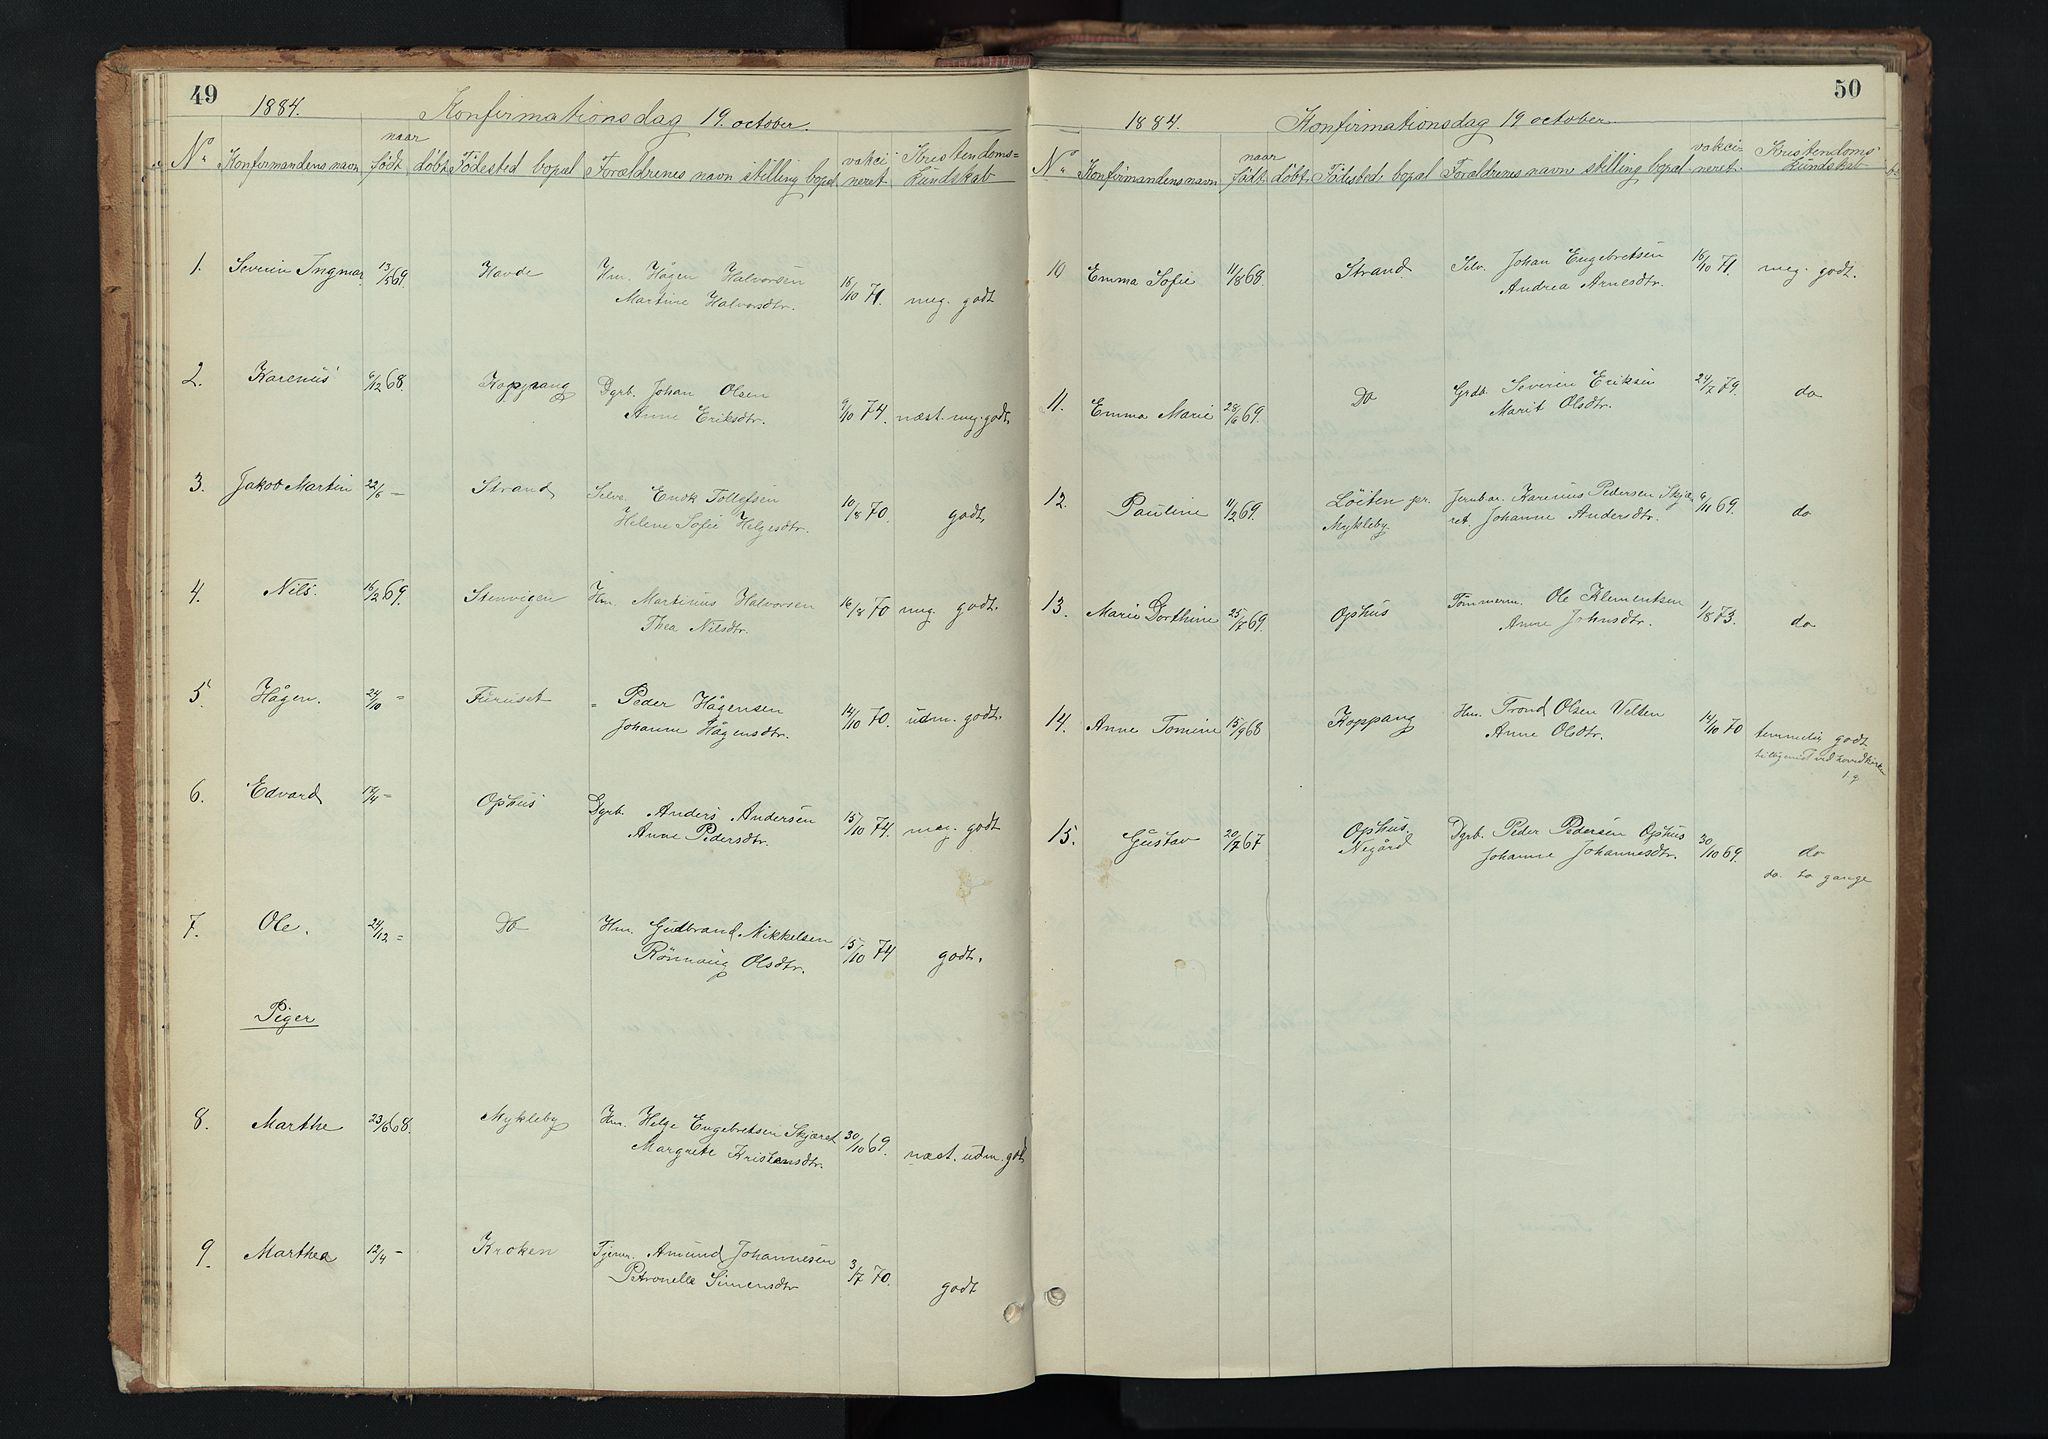 49
1884. Konfirmationsdag 19. october.
No. Konfirmandens navn naar født døbt Fødested bopæl Forældrenes navn stilling bopæl vakcineret Kristendoms=kundskab
1. Severin Ingmar 13/5 69. Havde Hm. Hågen Halvorsen 16/10 71. meg. godt
Martine Halvorsdtr.
2. Karenus 6/12 68. Koppang Dgrb. Johan Olsen 9/10 74. næst. meg. godt.
Anne Eriksdtr.
3. Jakob Martin 22/6 – Strand Selve. Enok Tollefsen 10/8 70. godt.
Helene Sofie Helgesdtr.
4. Nils. 16/2 69. Stenvigen Hm. Martinus Halvorsen 16/8 70 meg. godt.
Thea Nilsdtr.
5 Hågen. 24/10 = Furuset " Peder Hågensen 14/10 70. udm. godt.
Johanne Hågensdtr.
6. Edvard = Ophus Dgrb. Anders Andersen 15/10 74. meg. godt
Anne Pedersdtr.
7. Ole. 24/12 = Do Hm. Gudbrand Mikkelsen 15/10 74 godt.
Rönnaug Olsdtr.
Piger
8. Marthe 23/6 68. Mykleby Hm. Helge Engebretsen Skjæret 30/10 69. næst. udm. godt
Margrete Kristensdtr.
9. Marthea 12/4 – Kroken Tjenm. Amund Johannesen 3/7 70. godt
Petronelle Simensdtr
50
1884. Konfirmationsdag 19 october.
No. Konfirmandens navn naar født. døbt. Fødested. bopæl Forældrenes navn stilling bopæl vakcineret. Kristendoms=kundskab
10 Emma Sofie 11/8 68. Strand Selv. Johan Engebretsen 16/10 71. meg. godt.
Andrea Arnesdtr.
11. Emma Marie 28/6 69. Do Grdb. Severin Eriksen 24/7 79. do
Marit Olsdtr.
12. Pauline 11/2 69. Löiten pr. Jernbar. Karenus Pedersen Skjæ 6/11 69. do
Mykleby. ret. Johanne Andersdtr.
13. Marie Dorthine 25/7 69. Ophus Tömmerm. Ole Klementsen 1/8 73. do
Anne Johnsdtr.
14. Anne Tomine 15/9 68 Koppang Hm. Trond Olsen Velten 14/10 70 temmelig godt
Anne Olsdtr.
1 g
15. Gustav 20/7 67 Ophus. Dgrb. Peder Pedersen Ophus 30/10 69. do
Negård Johanne Johannesdtr.
do. to gange